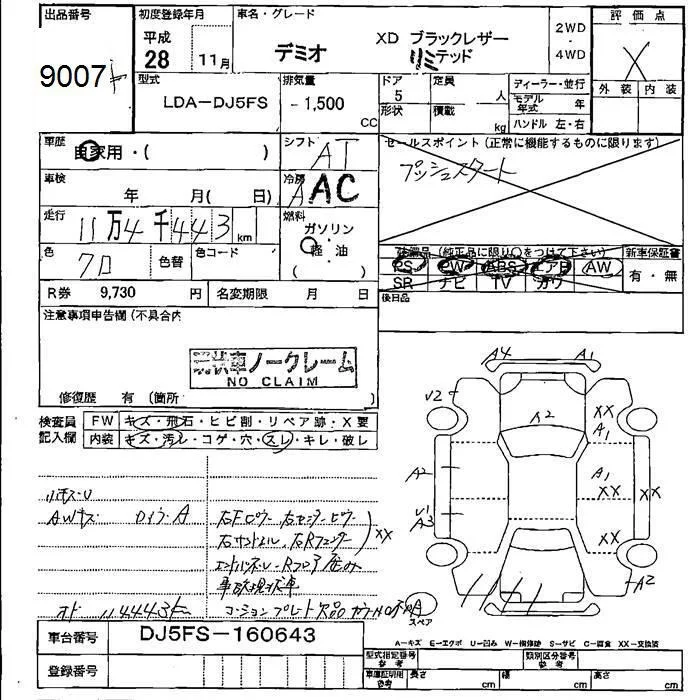 出品番号
9007
初度登録年月
平成
28 11月
車名・グレード
デミオ
XD ブラックレザー
リミテッド
2WD
・
4WD
評価点
X
外装 内装
型式
LDA-DJ5FS
排気量
- 1,500
CC
ドア
5
形状
定員
人
積載
kg
ディーラー・並行
モデル年式 年
ハンドル 左・右
車歴
自家用・( )
シフト
AT
セールスポイント(正常に機能するものに限ります)
プッシュスタート
車検
年 月( 日)
冷房
AAC
走行
11万4千443 km
燃料
ガソリン
軽油
( )
色
クロ
色替
色コード
装備品(純正品に限り○をつけて下さい)
PS PW ABS エアB AW
SR ナビ TV カワ
新車保証書
有・無
後日品
R券 9,730 円
名変期限 月 日
注意事項申告欄(不具合内
現状車ノークレーム
NO CLAIM
修復歴 有 (箇所 )
検査員
記入欄
FW キズ・飛石・ヒビ割・リペア跡・X要
内装 キズ・汚レ・コゲ・穴・スレ・キレ・破レ
小キズ・U
AWキズ
右Fピラー 右センターピラー
右サイドシル 右Rフェンダー
XX
エンドパネルU・Rフロア歪み
事故現状車
オド 114443km
コーションプレート欠品
A4 A1
V2
A2
XX
A1
A2
A1
XX
XX
U1
A3
XX
A2
A
スペア
A-キズ E-エクボ U-凹み W-補修跡 S-サビ C-腐食 XX-交換済
車台番号
DJ5FS-160643
登録番号
型式指定番号
参考
類別区分番号
参考
車庫証明用
参考
長さ cm
幅 cm
高さ cm